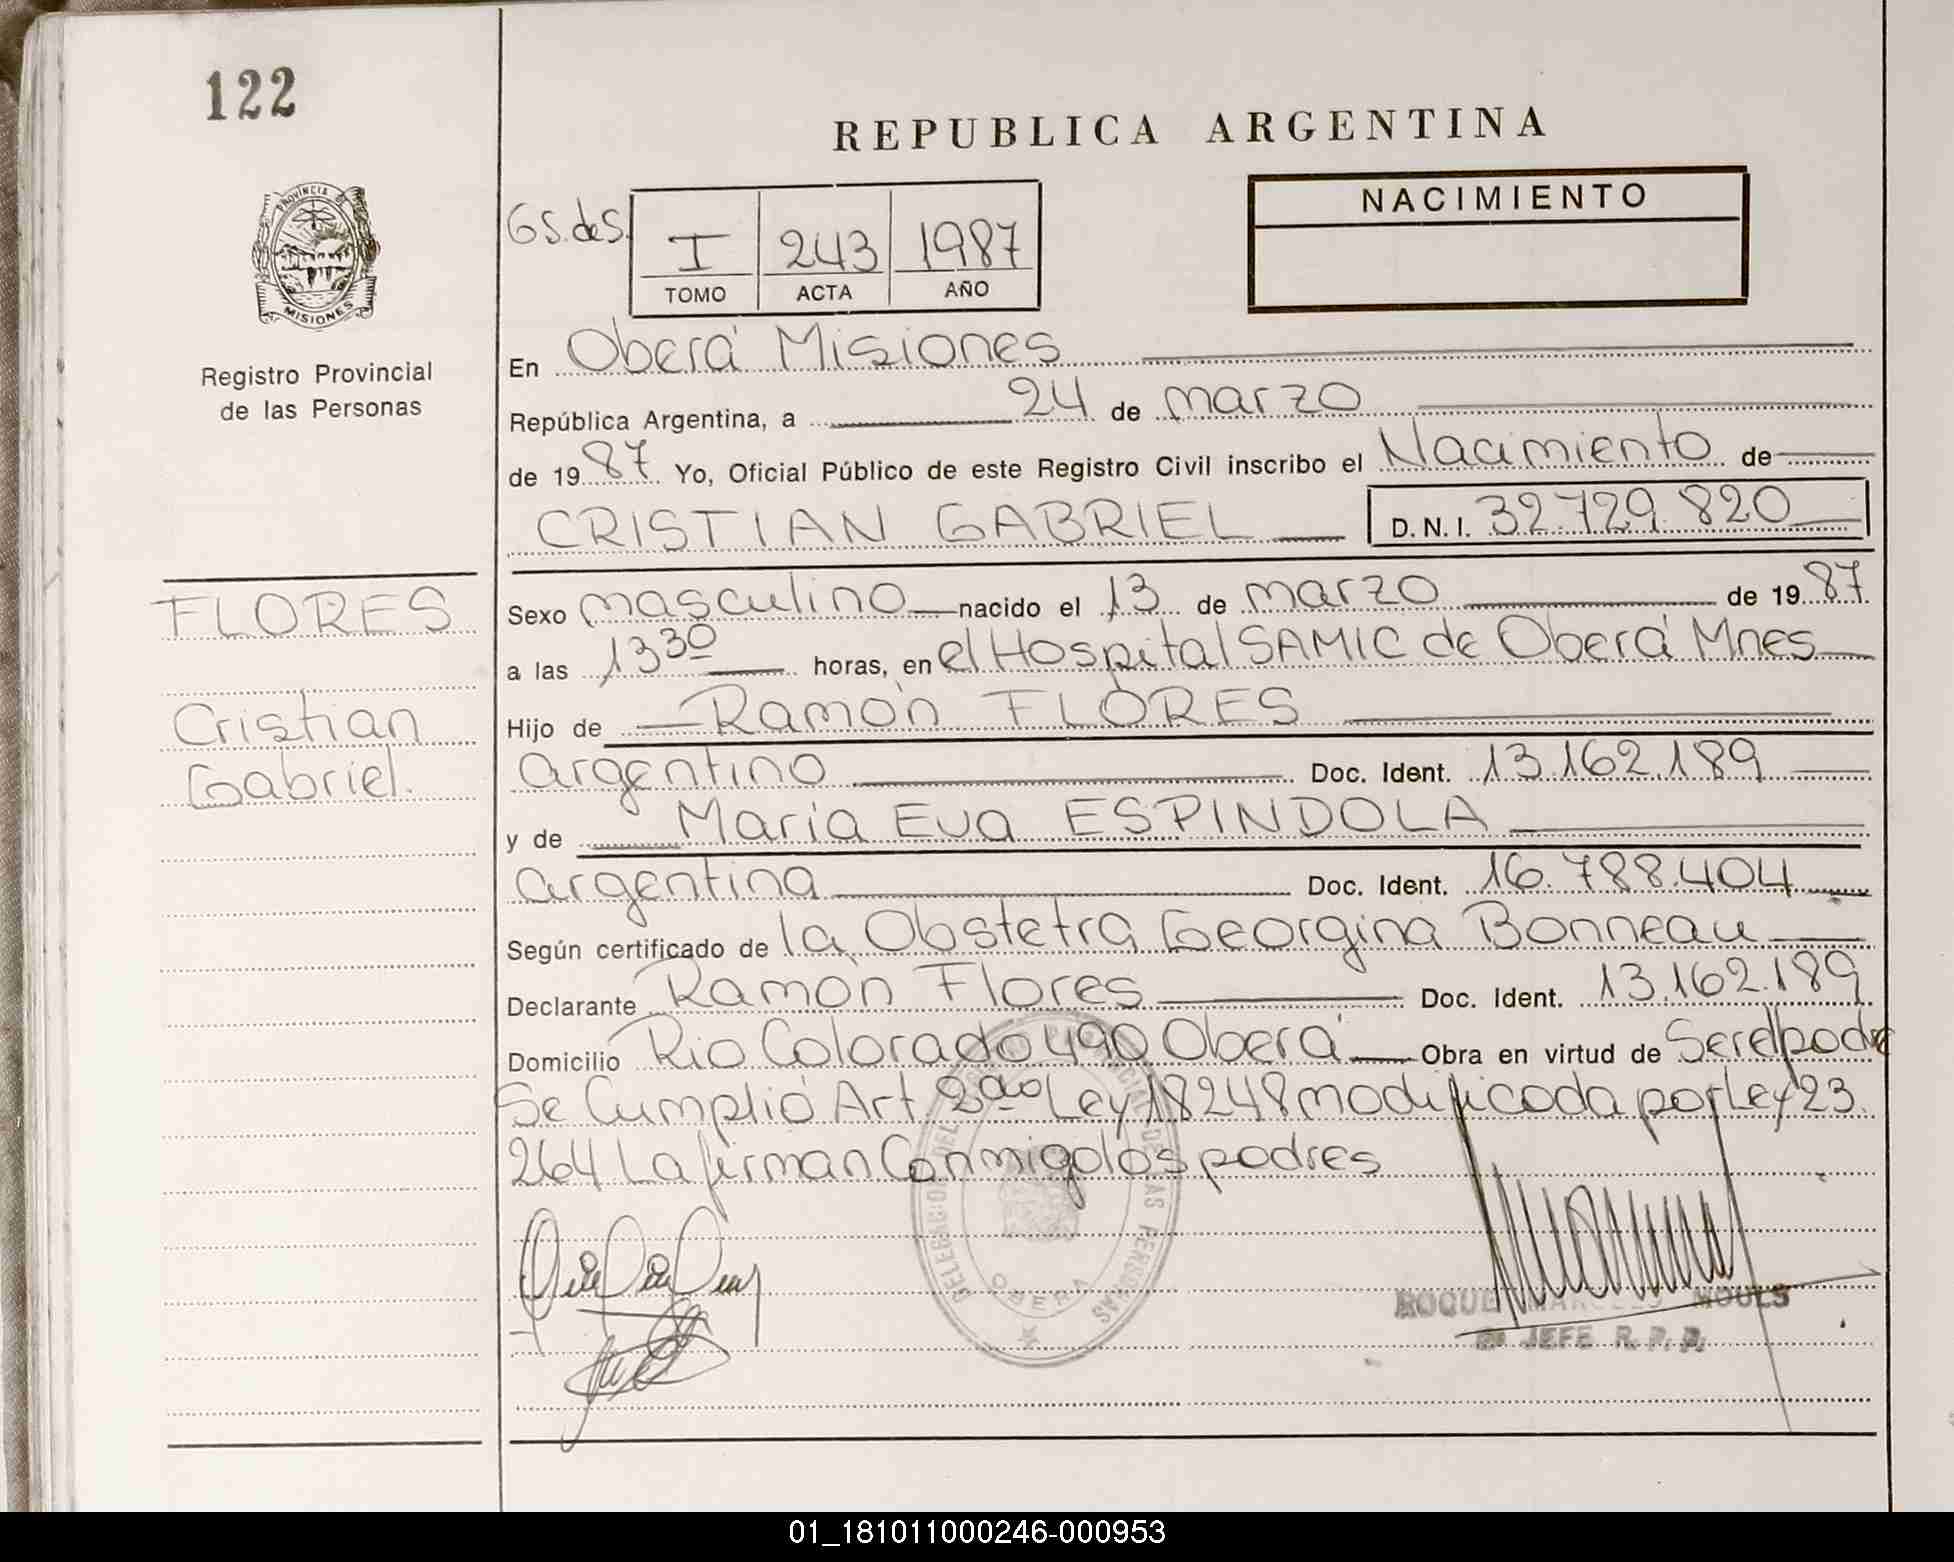 122
REPUBLICA ARGENTINA
PROVINCIA DE
MISIONES
Registro Provincial
de las Personas
GS.deS.
I 243 1987
TOMO ACTA AÑO
NACIMIENTO
En Oberá Misiones
República Argentina, a 24 de marzo
de 1987 Yo, Oficial Público de este Registro Civil inscribo el Nacimiento de
CRISTIAN GABRIEL D.N.I. 32.729.820
FLORES
Cristian
Gabriel.
Sexo masculino nacido el 13 de marzo de 1987
a las 13 30 horas, en el Hospital SAMIC de Oberá Mnes
Hijo de Ramòn FLORES
argentino Doc. Ident. 13.162.189
y de María Eva ESPINDOLA
argentina Doc. Ident. 16.788.404
Según certificado de la Obstetra Georgina Bonneau
Declarante Ramòn Flores Doc. Ident. 13.162.189
Domicilio Rio Colorado 490 Oberá Obra en virtud de Ser el padre
Se Cumplió Art. 2do Ley 18248 modificada por Ley 23.
264 La firman Conmigo los padres
DELEGACION DEL REGISTRO PROVINCIAL DE LAS PERSONAS
OBERA
ROQUE MARCELO MOULS
JEFE R. P. P.
01_181011000246-000953